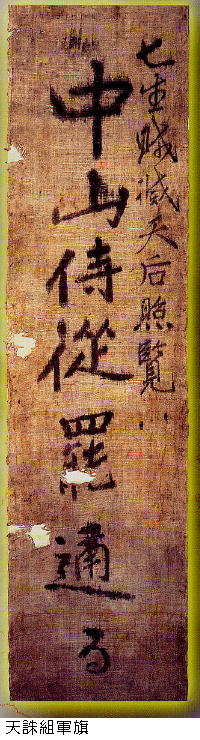 七生賊滅天后照覽
中山侍從罷通る
天誅組軍旗